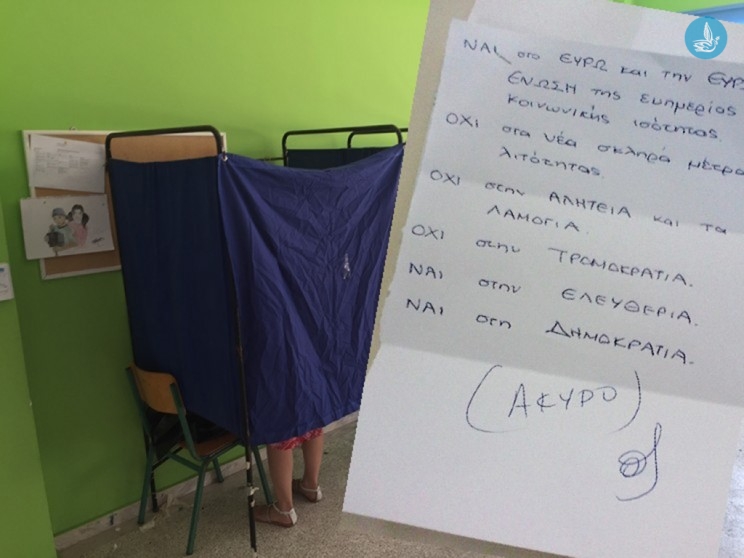 ΝΑΙ στο ΕΥΡΩ και την ΕΥΡΩ
ΕΝΩΣΗ της ευημερίας
κοινωνικής ισότητας.
ΟΧΙ στα νέα σκληρά μέτρα
λιτότητας.
ΟΧΙ στην ΑΛΗΤΕΙΑ και τα
ΛΑΜΟΓΙΑ.
ΟΧΙ στην ΤΡΟΜΟΚΡΑΤΙΑ.
ΝΑΙ στην ΕΛΕΥΘΕΡΙΑ.
ΝΑΙ στη ΔΗΜΟΚΡΑΤΙΑ.
(ΑΚΥΡΟ)